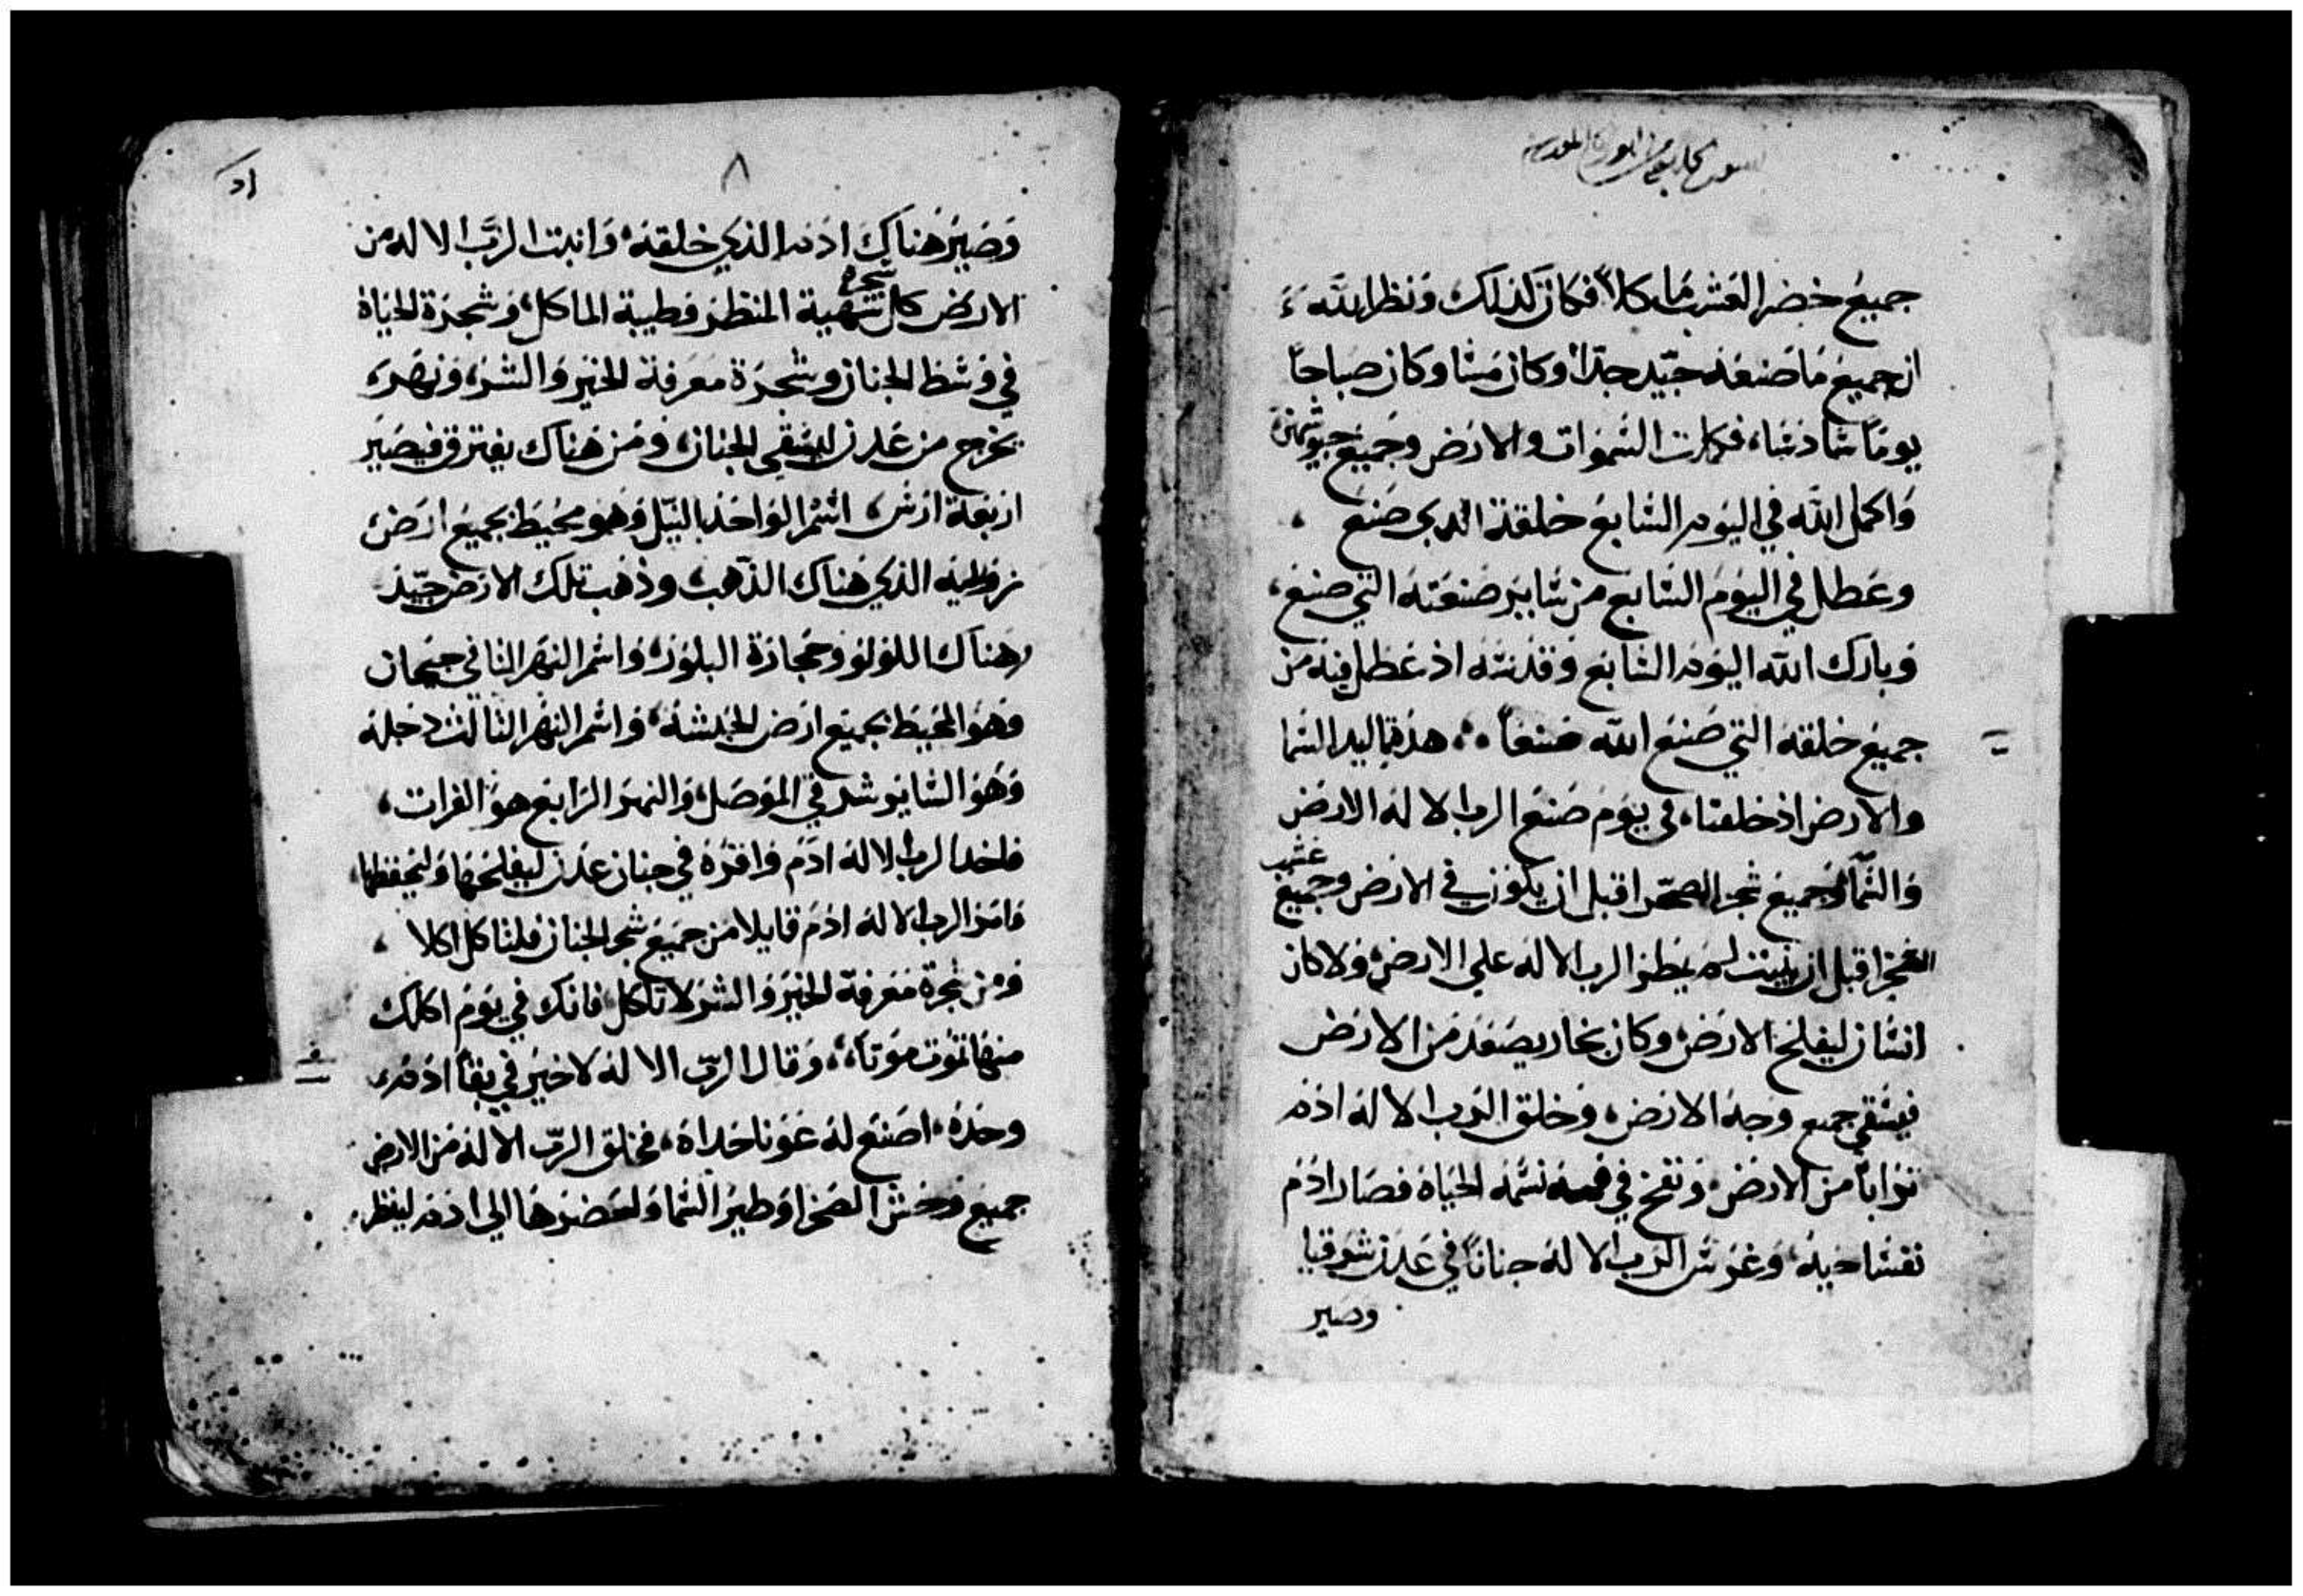 جميع خضر العشب ماكلاً فكان كذلك ونظر الله
ان جميع ما صنعه جيّد جدّاً وكان مسا وكان صباحاً
يومًا سادسًا، فكملت السموات والارض وجميع جيوشهن
واكمل الله في اليوم السابع خلقته الدي صنع
وعطل في اليوم السابع من ساير صنعته التي صنع
وبارك الله اليوم السابع وقدسه اذ عطل فيه من
جميع خلقه التي صنع الله صنعاً هذه تماليد السما
والارض اذ خلقتا، في يوم صنع الرب الاله الارض
والسمآ وجميع شجر الصحرا قبل ان يكون في الارض وجميع عشب
الصحرا قبل ان ينبت لم يمطر الرب الاله على الارض ولا كان
انسان ليفلح الارض وكان بخار يصعد من الارض
فيسقي جميع وجه الارض، وخلق الرب الاله ادم
تراباً من الارض ونفخ في فمه نسمة الحياة فصار ادم
نفسا حية، وغرس الرب الاله جناناً في عدن شرقيا
وصير
٨
وصير هناك ادم الذي خلقه، وانبت الرب الاله من
الارض كل شجرة شهية المنظر وطيبة الماكل، وشجرة الحياة
في وسط الجنان وشجرة معرفة الخير والشر، ونهر
يخرج من عدن ليسقي الجنان، ومن هناك يفترق فيصير
اربعة ارس، اسم الواحد بالنيل وهو محيط بجميع ارض
زويله الذي هناك الذهب، وذهب تلك الارض جيّد
وهناك اللولو وحجارة البلور، واسم النهر الثاني جيحان
وهو المحيط بجميع ارض الحبشه، واسم النهر الثالث دجله
وهو الساير شرقي الموصل، والنهر الرابع هو الفرات،
فاخد الرب الاله ادم واقره في جنان عدن ليفلحها وليحفظها،
وامر الرب الاله ادم قايلا من جميع شجر الجنان فلتاكل اكلا
ومن شجرة معرفة الخير والشر لا تاكل، فانك في يوم اكلك
منها تموت موتاً، وقال الربّ الاله لا خير في بقا ادم
وحده، اصنع له عونا حداه، فخلق الربّ الاله من الارض
جميع وحش الصحرا وطير السما واحضرها الي ادم لينظر